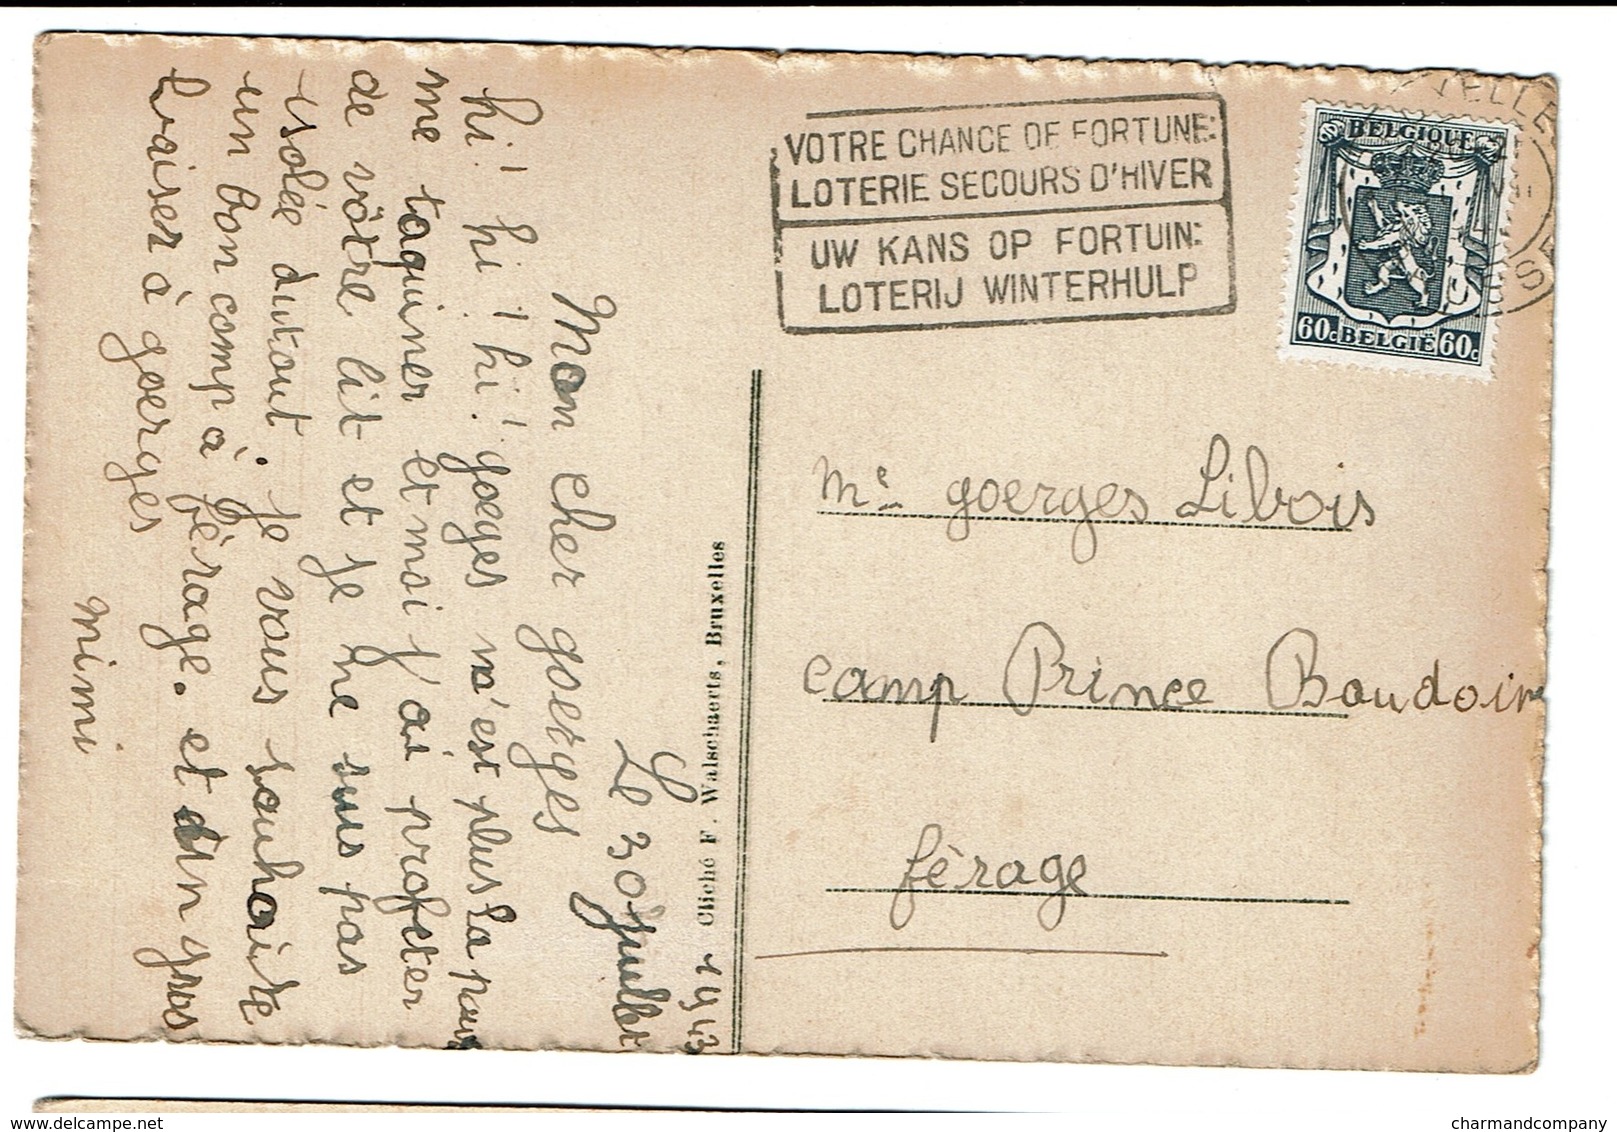 Le 30 juillet 1943
Mon cher goerges
hi! hi! hi! goeges n'est plus la pour
me taquiner et moi j'ai profeter
de vôtre lit et je ne suis pas
isolée dutout. je vous souhaite
un bon comp à férage. et d'un gros
baiser à goerges
mimi
Cliché F. Walschaerts, Bruxelles
VOTRE CHANCE DE FORTUNE:
LOTERIE SECOURS D'HIVER
UW KANS OP FORTUIN:
LOTERIJ WINTERHULP
BELGIQUE
60c BELGIË 60c
Mr goerges Libois
camp Prince Baudoin
férage
charmandcompany